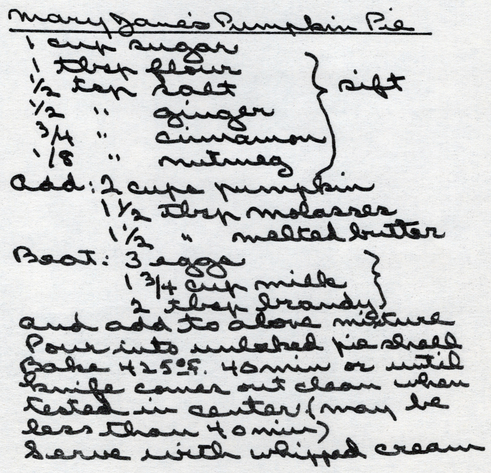 Mary Jane's Pumpkin Pie
1 cup sugar
1 tbsp flour
1/2 tsp salt } sift
1/2 " ginger
3/4 " cinnamon
1/8 " nutmeg
Add: 2 cups pumpkin
1 1/2 tbsp molasses
1 1/2 " melted butter
Beat: 3 eggs
1 3/4 cup milk
2 tbsp brandy
and add to above mixture
Pour into unbaked pie shell
Bake 425°F. 40 min or until
knife comes out clean when
tested in center (may be
less than 40 min)
Serve with whipped cream